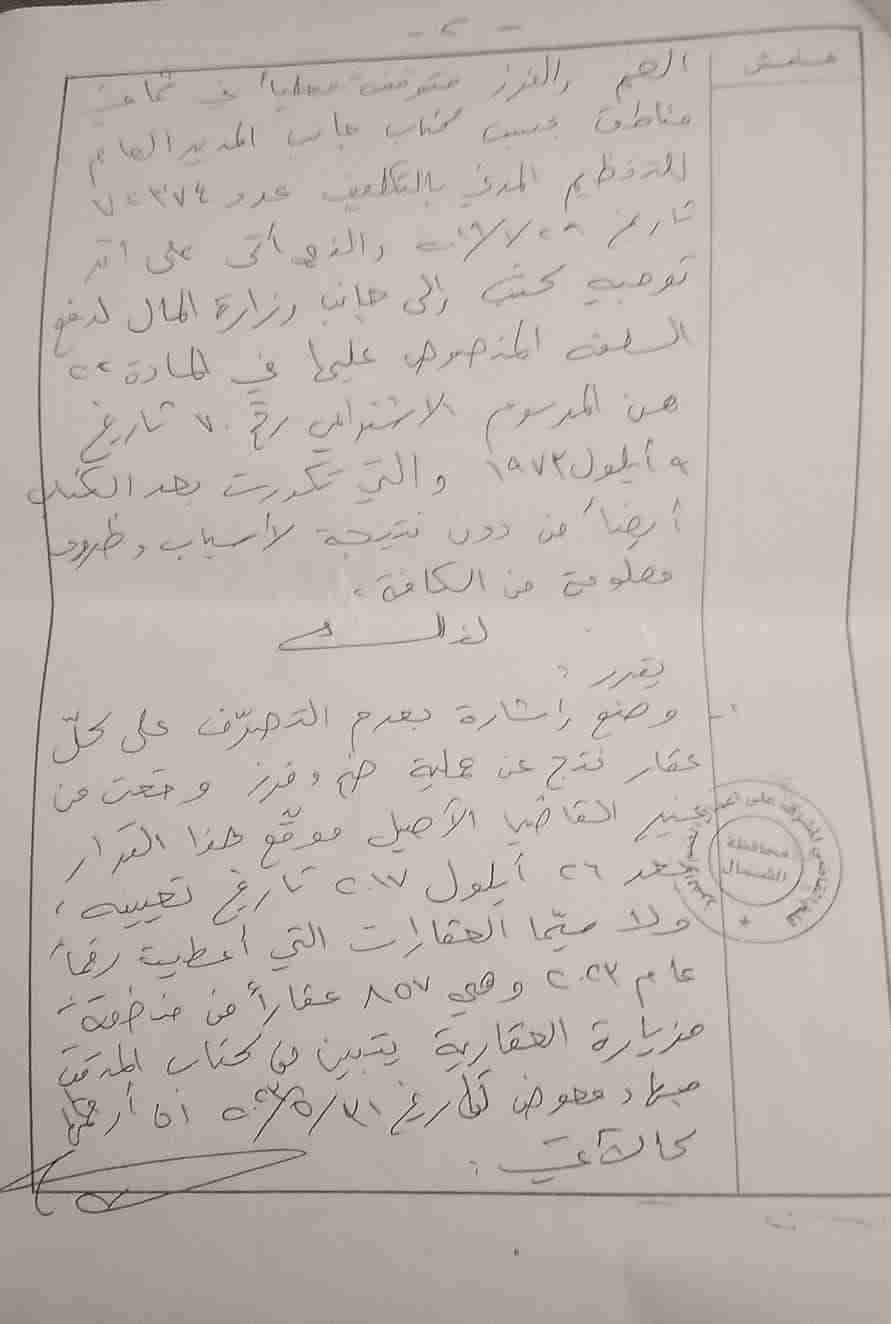 - ٢ -
هامش
الضم والفرز متوقف عملياً في ثماني
مناطق بحسب كتاب جانب المدير العام
للتنظيم المدني بالتكليف عدد
تاريخ والذي أتى على اثر
توجيه كتب إلى جانب وزارة المال لدفع
السلفة المنصوص عليها في المادة ٢٢
من المرسوم الاشتراعي رقم ٧٠ تاريخ
٩ أيلول ١٩٧٣ والتي تكررت بعد الكتب
أيضاً من دون نتيجة لأسباب وظروف
معلومة من الكافة.
لذلك
يقرر:
١- وضع إشارة بعدم التصرّف على كلّ
عقار نتج عن عملية ضم وفرز وقعت من
غير القاضي الأصيل موقّع هذا القرار
بعد ٢٦ أيلول ٢٠١٧ تاريخ تعيينه،
ولا سيّما العقارات التي أعطيت رقماً
عام ٢٠٢٣ وهي ٨٥٧ عقاراً من منطقة
مزيارة العقارية يتبين من كتاب
جهاد معوض تاريخ ٣١/٥/٢٠٢٣ أن أرقامها
كالآتي:
محافظة
الشمال